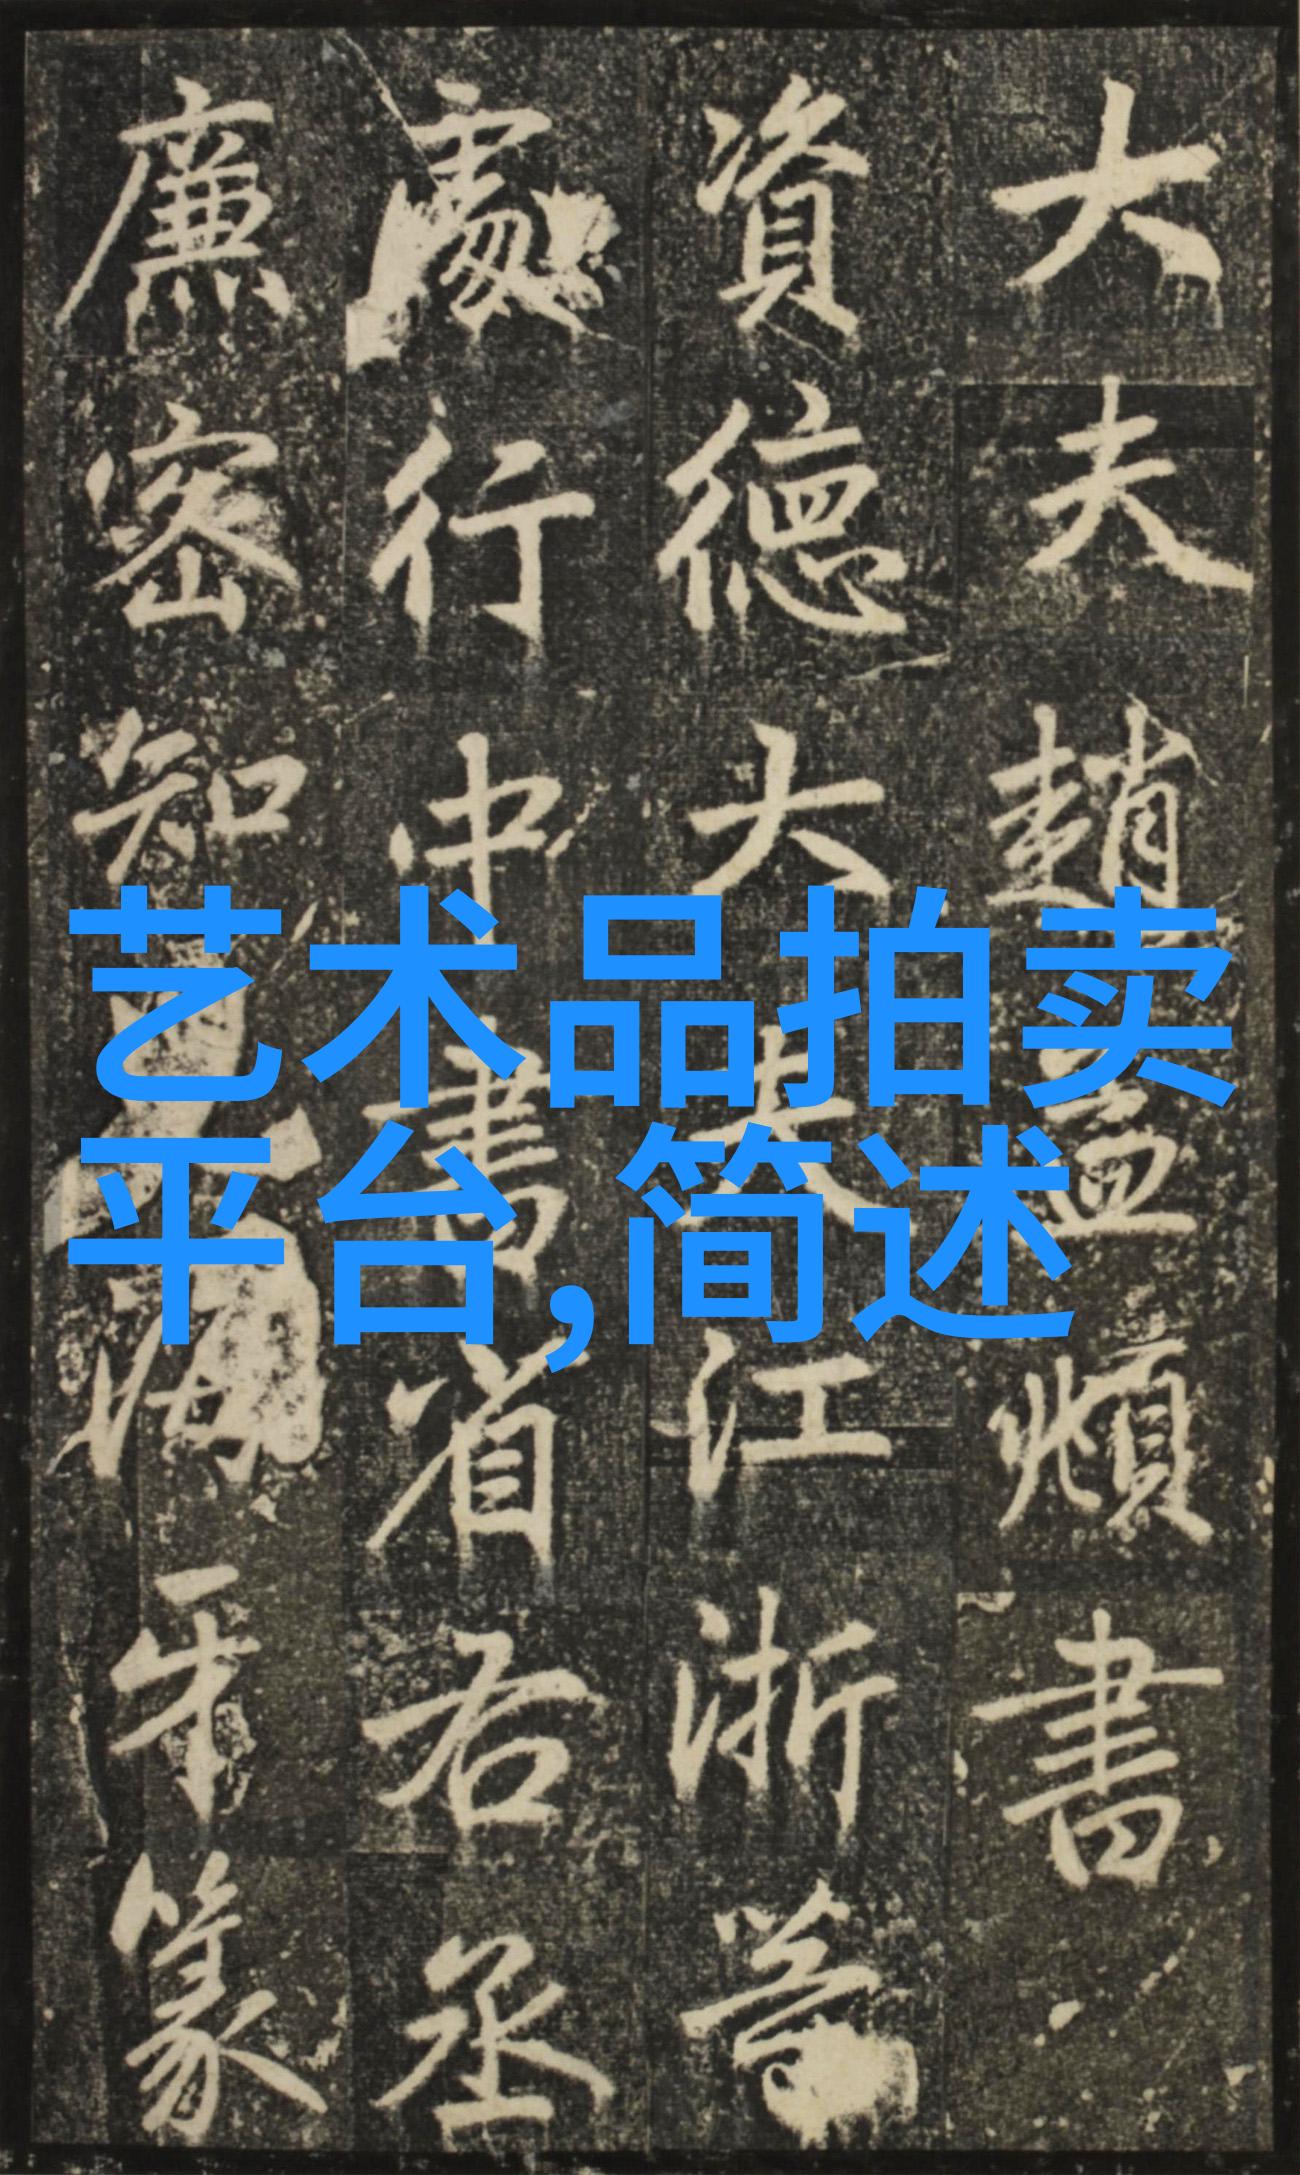 大夫趙孟頫書
資德大夫江浙等
處行中書省右丞
廉密知兒海牙篆
艺术品拍卖
平台,简述